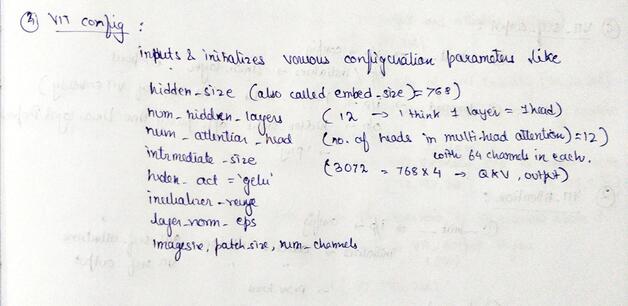 ③ VIT config :
inputs & initializes various configuration parameters like
hidden-size (also called embed-size) = 768)
num-hidden-layers (12 → I think 1 layer = 1 head)
num-attention-head (no. of heads in multi-head attention) = 12)
with 64 channels in each.
intrmediate-size (3072 = 768 x 4 → QKV, output)
hiden-act = 'gelu'
initializer-range
layer-norm-eps
imagesize, patch-size, num-channels